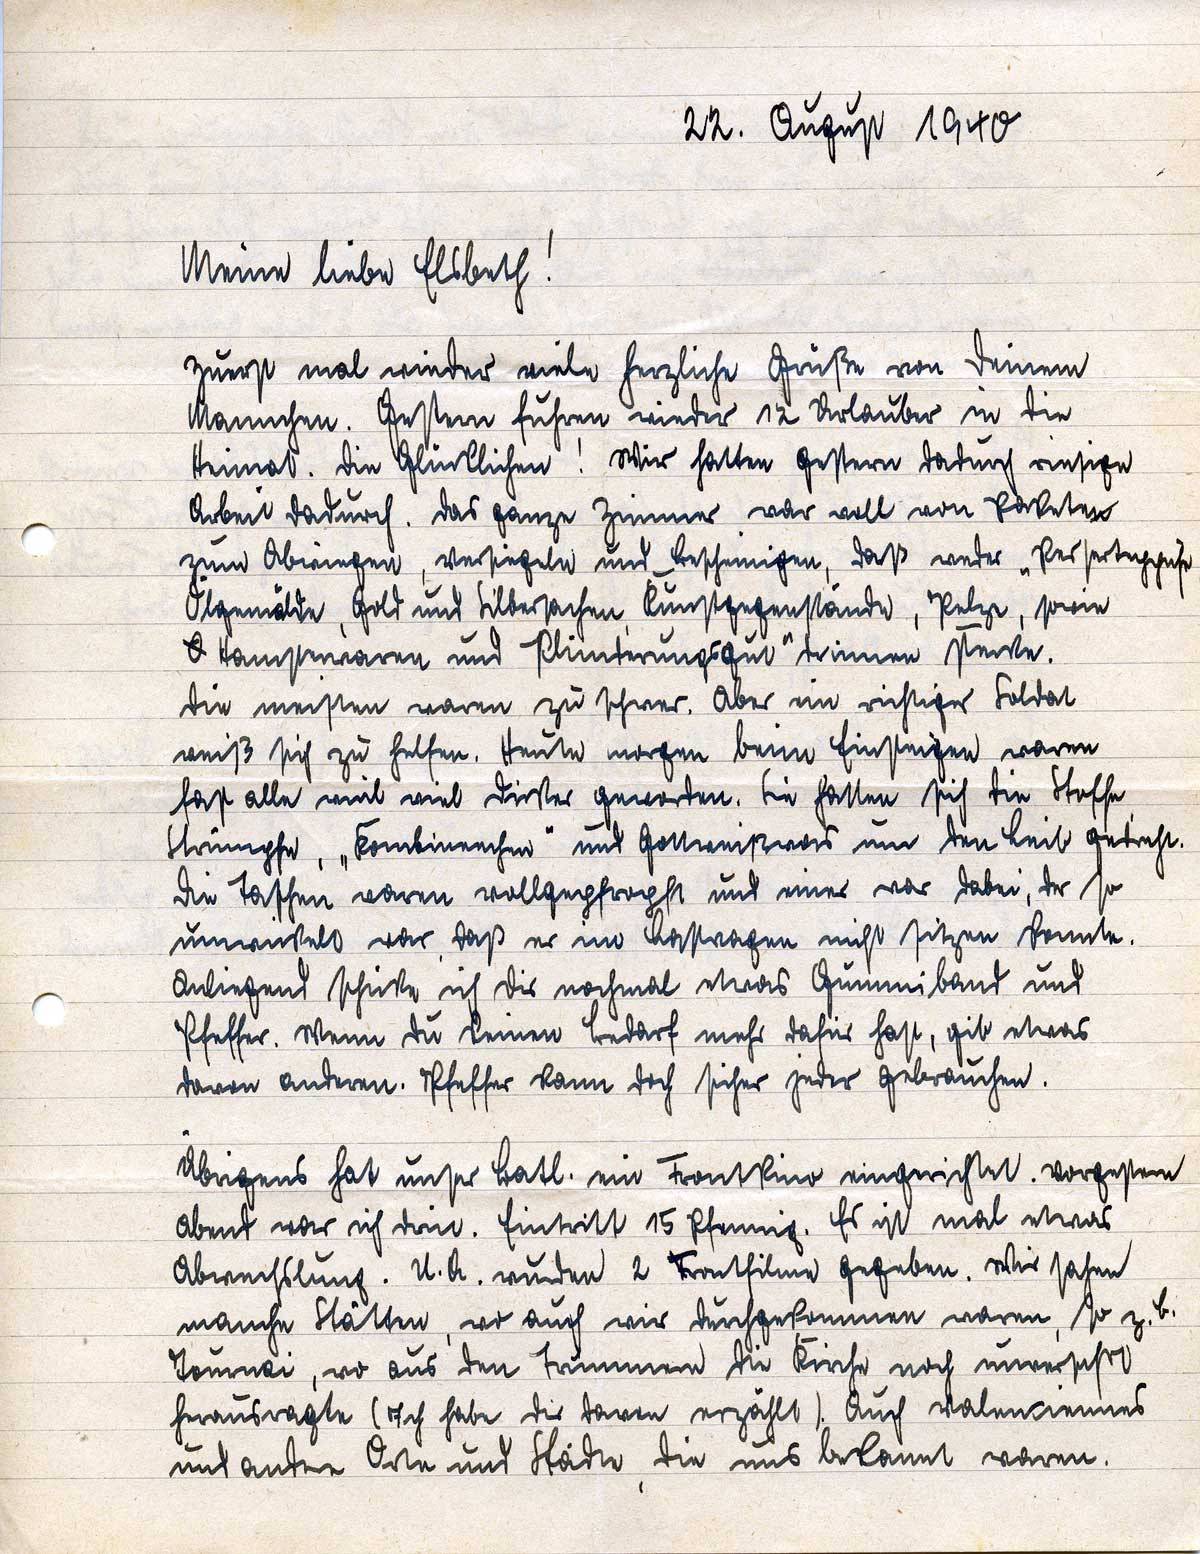 22. August 1940
Meine liebe Elsbeth!
Zuerst mal wieder viele herzliche Grüße von Deinem
Mannchen. Gestern fuhren wieder 12 Urlauber in die
Heimat. Die Glücklichen! Wir hatten gestern dadurch riesige
Arbeit dadurch. Das ganze Zimmer war voll von Paketen
zum Abwiegen, Versiegeln und Bescheinigen, daß weder „Perserteppiche
Ölgemälde, Gold und Silbersachen, Kunstgegenstände, Pelze, sowie
Hamsterwaren und Plünderungsgut" drinnen stecke.
Die meisten waren zu schwer. Aber ein richtiger Soldat
weiß sich zu helfen. Heute morgen beim Einsteigen waren
fast alle viel viel dicker geworden. Sie hatten sich die Stoffe,
Strümpfe, „Kombineechen" und Gottweißwas um den Leib gedreht.
Die Taschen waren vollgepfropft und einer war dabei, der so
umwickelt war, daß er im Lastwagen nicht sitzen konnte.
Anliegend schicke ich Dir nochmal etwas Gummiband und
Pfeffer. Wenn Du keinen Bedarf mehr dafür hast, gib etwas
davon anderen. Pfeffer kann doch sicher jeder gebrauchen.
Übrigens hat unser Batl. ein Frontkino eingerichtet. Vorgestern
Abend war ich drin. Eintritt 15 Pfennig. Es ist mal etwas
Abwechslung. U.A. wurden 2 Frontfilme gegeben. Wir sahen
manche Stätten, wo auch wir durchgekommen waren, so z.B.
Tournai, wo aus den Trümmern die Kirche noch unversehrt
herausragte (Ich habe dir davon erzählt). Auch Valenciennes
und andere Orte und Städte, die uns bekannt waren.